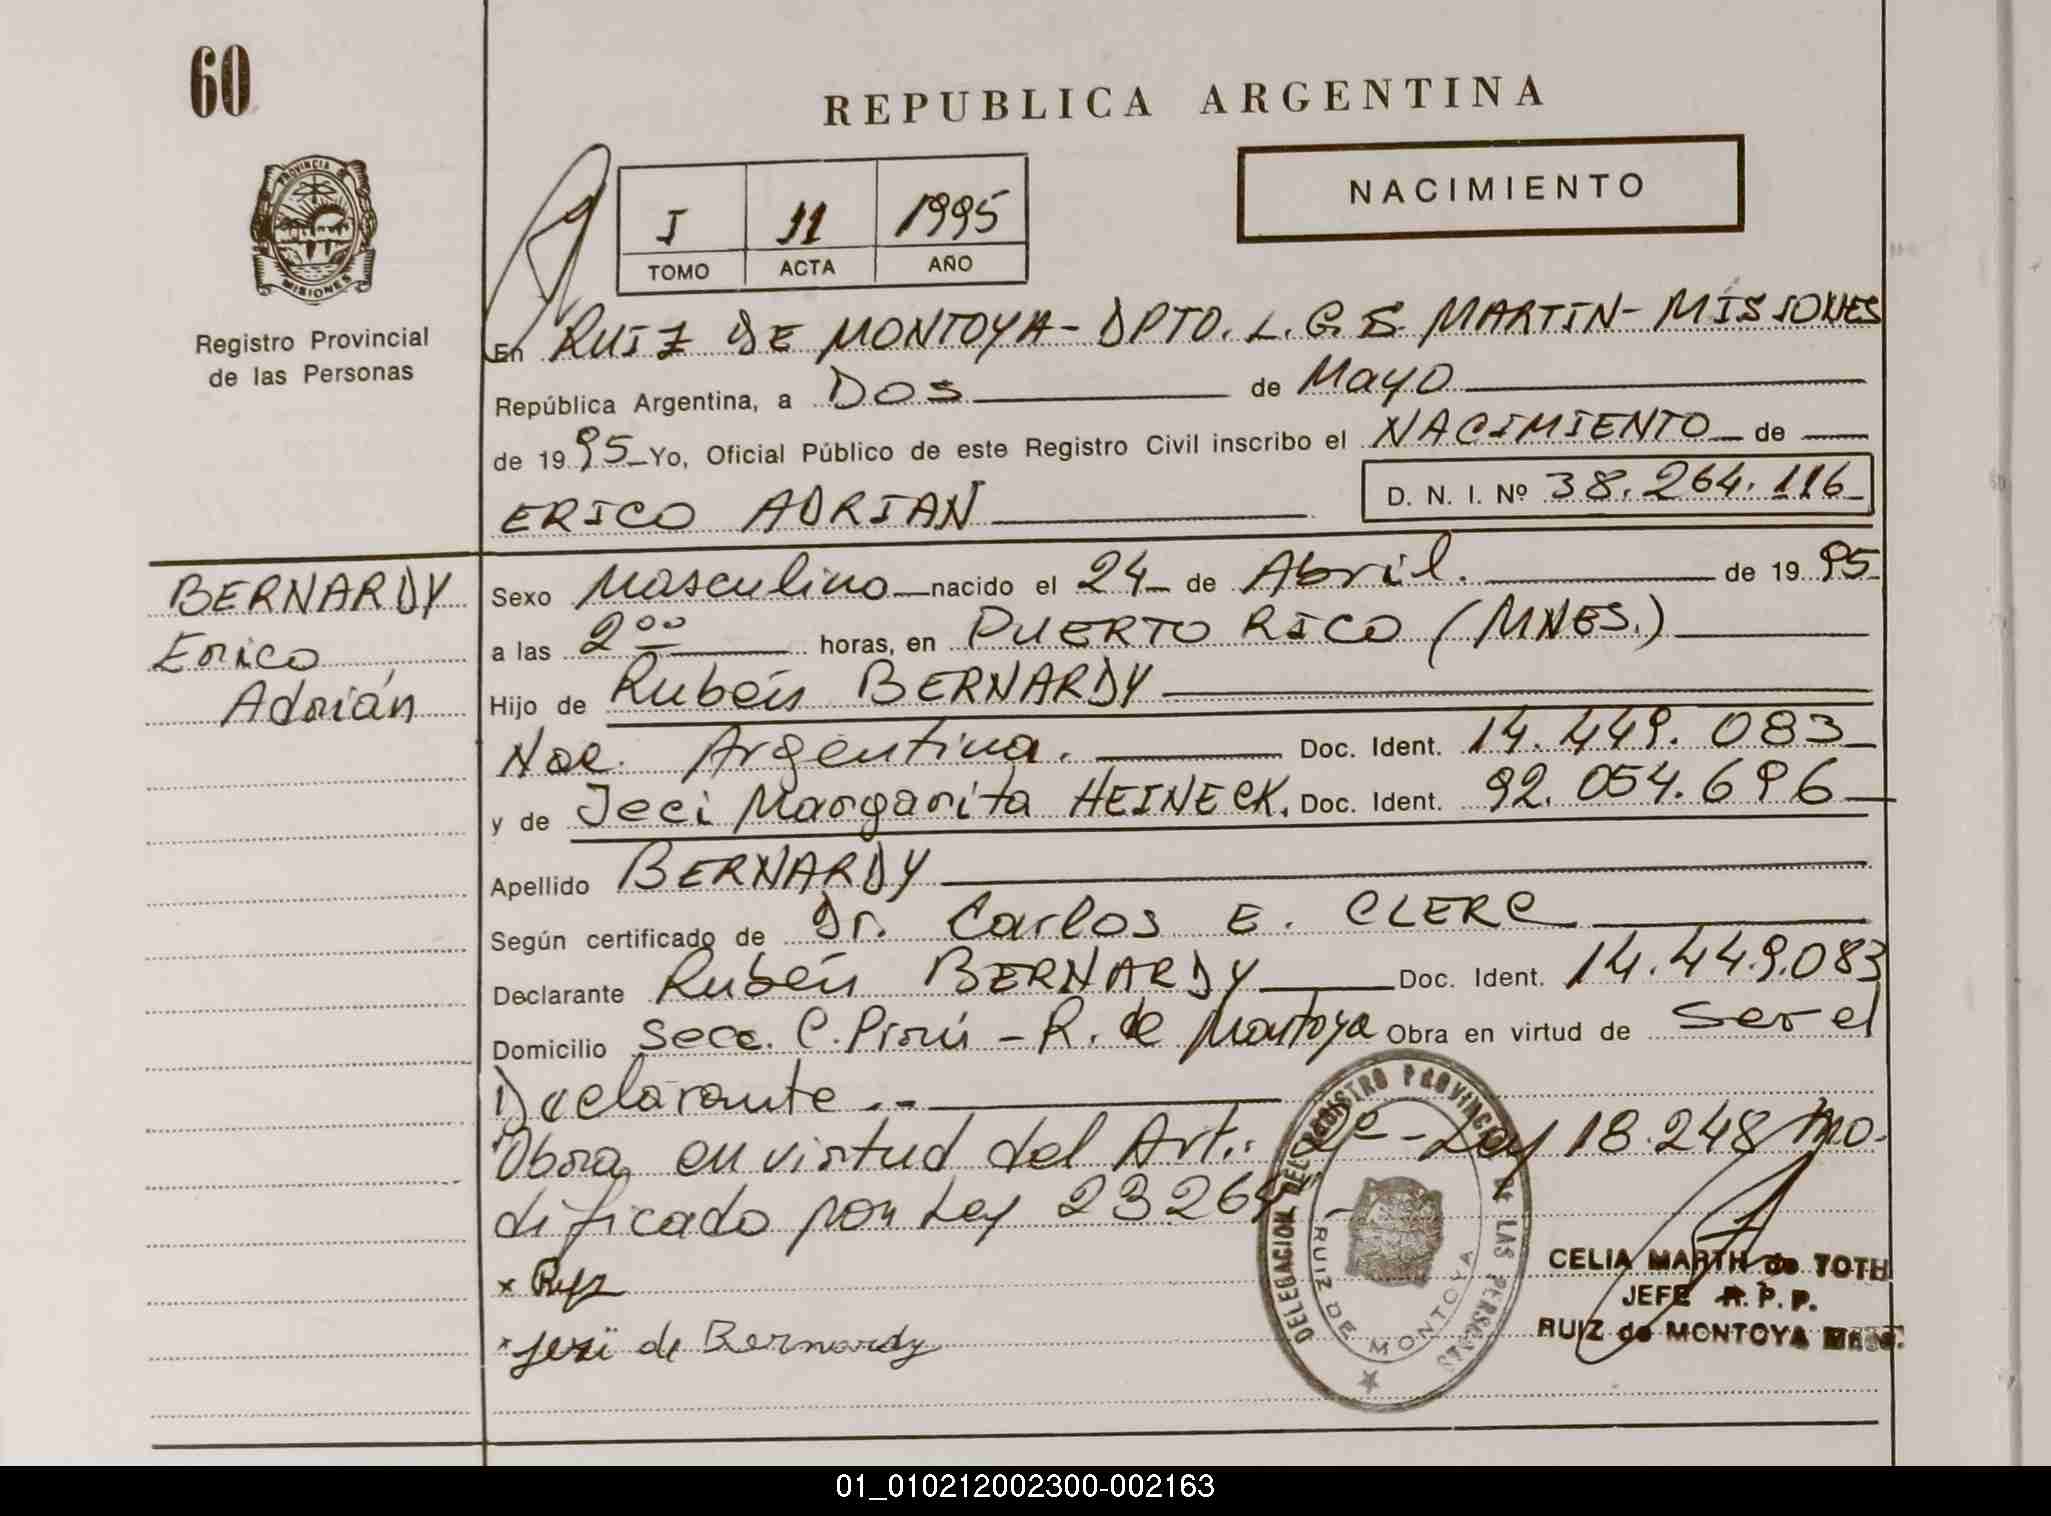 60
REPUBLICA ARGENTINA
PROVINCIA DE
MISIONES
Registro Provincial
de las Personas
I 11 1995
TOMO ACTA AÑO
NACIMIENTO
En RUIZ DE MONTOYA - DPTO. L. G. S. MARTIN - MISIONES
República Argentina, a Dos de Mayo
de 1995 Yo, Oficial Público de este Registro Civil inscribo el NACIMIENTO de
ERICO ADRIAN D. N. I. Nº 38.264.116
BERNARDY
Erico
Adrián
Sexo Masculino nacido el 24 de Abril. de 1995
a las 2 00 horas, en PUERTO RICO (MNES.)
Hijo de Rubén BERNARDY
Nac. Argentina. Doc. Ident. 14.449.083
y de Jeci Margarita HEINECK. Doc. Ident. 92.054.696
Apellido BERNARDY
Según certificado de Dr. Carlos E. CLERC
Declarante Rubén BERNARDY Doc. Ident. 14.449.083
Domicilio Secc. C. Pirú - R. de Montoya Obra en virtud de ser el
Declarante.-
Obra en virtud del Art.: 2º - Ley 18.248 mo-
dificado por Ley 23.264 -
x
x Jeci de Bernardy
DELEGACION DEL REGISTRO PROVINCIAL DE LAS PERSONAS
RUIZ DE MONTOYA
CELIA MARTH de TOTH
JEFE R. P. P.
RUIZ de MONTOYA
01_010212002300-002163